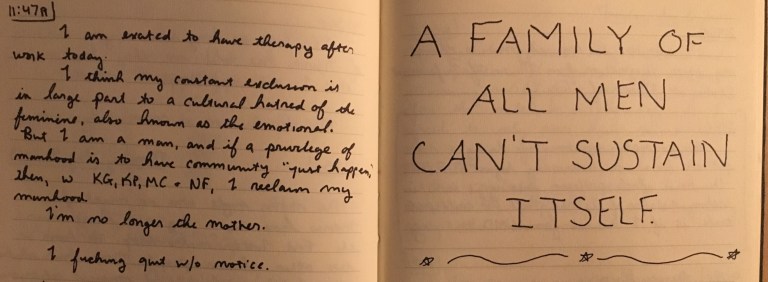 11:47A
I am excited to have therapy after
work today.
I think my constant exclusion is
in large part to a cultural hatred of the
feminine, also known as the emotional.
But I am a man, and if a privilege of
manhood is to have community "just happen,"
then, w KG, KP, MC + NF, I reclaim my
manhood.
I'm no longer the mother.
I fucking quit w/o notice.
A FAMILY OF
ALL MEN
CAN'T SUSTAIN
ITSELF.